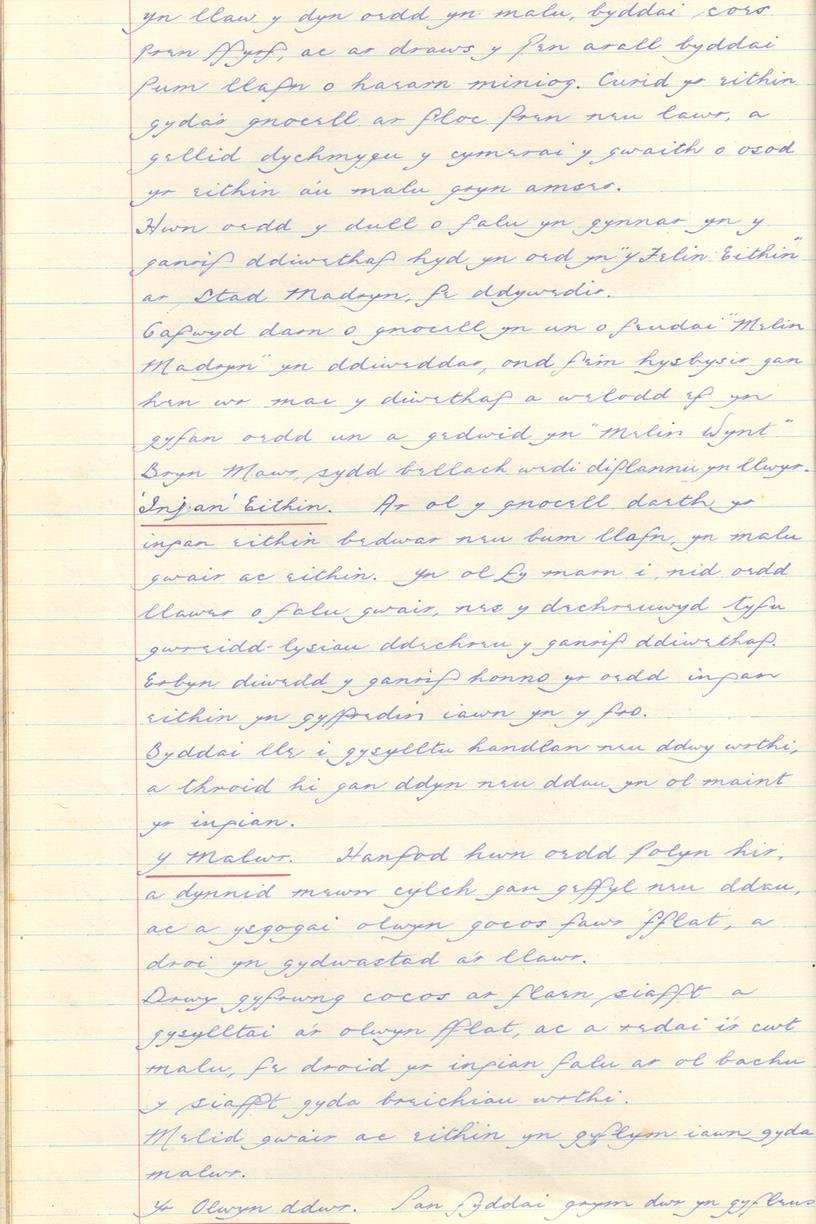 yn llaw y dyn oedd yn malu, byddai coes
pren ffyrf, ac ar draws y pen arall byddai
pum llafn o haearn miniog. Curid yr eithin
gyda'r gnocell ar floc pren neu lawr, a
gellid dychmygu y cymerai y gwaith o osod
yr eithin a'u malu gryn amser.
Hwn oedd y dull o falu yn gynnar yn y
ganrif ddiwethaf hyd yn oed yn "Y Felin Eithin"
ar Stad Madryn, fe ddywedir.
Cafwyd darn o gnocell yn un o feudai "Melin
Madryn" yn ddiweddar, ond fe'm hysbysir gan
hen wr mae y diwethaf a welodd ef yn
gyfan oedd un a gedwid yn "Melin Wynt"
Bryn Mawr, sydd bellach wedi diflannu yn llwyr.
'Injan' Eithin. Ar ol y gnocell daeth yr
injan eithin bedwar neu bum llafn, yn malu
gwair ac eithin. Yn ol fy mam i, nid oedd
llawer o falu gwair, nes y dechreuwyd tyfu
gwreidd-lysiau ddechreu y ganrif ddiwethaf.
Erbyn diwedd y ganrif honno yr oedd injan
eithin yn gyffredin iawn yn y fro.
Byddai lle i gysylltu handlan neu ddwy wrthi,
a throid hi gan ddyn neu ddau yn ol maint
yr injian.
Y Malwr. Hanfod hwn oedd polyn hir,
a dynnid mewn cylch gan geffyl neu ddau,
ac a ysgogai olwyn gocos fawr 'fflat, a
droi yn gydwastad a'r llawr.
Drwy gyfrwng cocos ar flaen siafft a
gysylltai a'r olwyn fflat, ac a redai i'r cwt
malu, fe droid yr injian falu ar ol bachu
y siafft gyda breichiau wrthi.
Melid gwair ac eithin yn gyflym iawn gyda
malwr.
Yr Olwyn ddwr. Pan fyddai grym dwr yn gyfleus